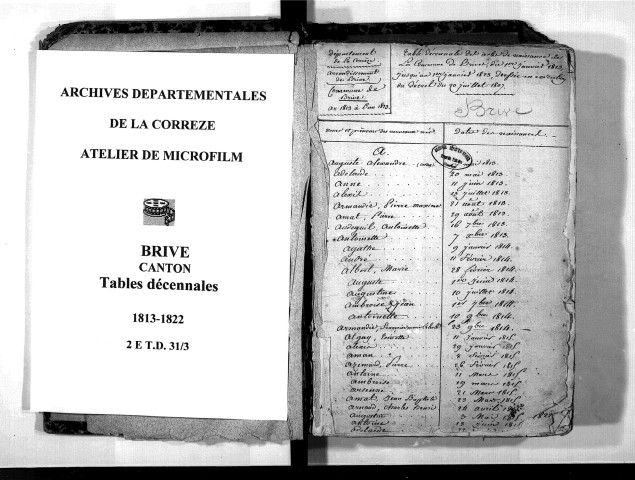 ARCHIVES DEPARTEMENTALES
DE LA CORREZE
ATELIER DE MICROFILM
BRIVE
CANTON
Tables décennales
1813-1822
2 E T.D. 31/3
Département
de la Corrèze
arrondissement
de Brive
Commune de
Brive
an 1813 à l'an 1823.
Table décennale des actes de naissance de
La Commune de Brive, du 1er janvier 1813
jusqu'au 1er janvier 1823, dressée en exécution
du décret du 20 juillet 1807.
Brive
noms et prénoms des nouveaux nés.
Dates des naissances.
A.
Auguste Alexandre mai 1813.
Adelaide 20 mai 1813.
Anne 11 juin 1813.
Alexis juillet 1813.
Armandie, Pierre maxime 21 août 1813.
Amat, Pierre 29 août 1813.
Antoinette 16 7bre 1813.
Antoinette 7 xbre 1813.
Agathe 9 janvier 1814.
André 11 février 1814.
Albert, Marie 28 février 1814.
Auguste 1er juin 1814.
Augustine 10 juillet 1814.
Ambroise Jean 1er 7bre 1814.
Antoinette 10 9bre 1814.
Armandie, 23 9bre 1814.
11 janvier 1815.
Alexis 29 janvier 1815.
Aman 8 février 1815.
Pierre 26 février 1815.
Antoine 11 Mars 1815.
Ambroise 19 mars 1815.
21 Mars 1815.
Amat Jean Baptiste 23 Mars 1815.
Arnaud, Charles Henri 26 avril 1815.
Augustin 3 Mai 1815.
Antoine 13 juin 1815.
Adelaide